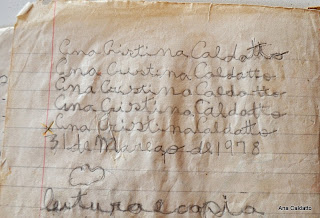 Ana Cristina Caldatto
Ana Cristina Caldatto
Ana Cristina Caldatto
Ana Cristina Caldatto
x Ana Christina Caldatto
31 de Março de 1978
leitura e copia
Ana Caldatto